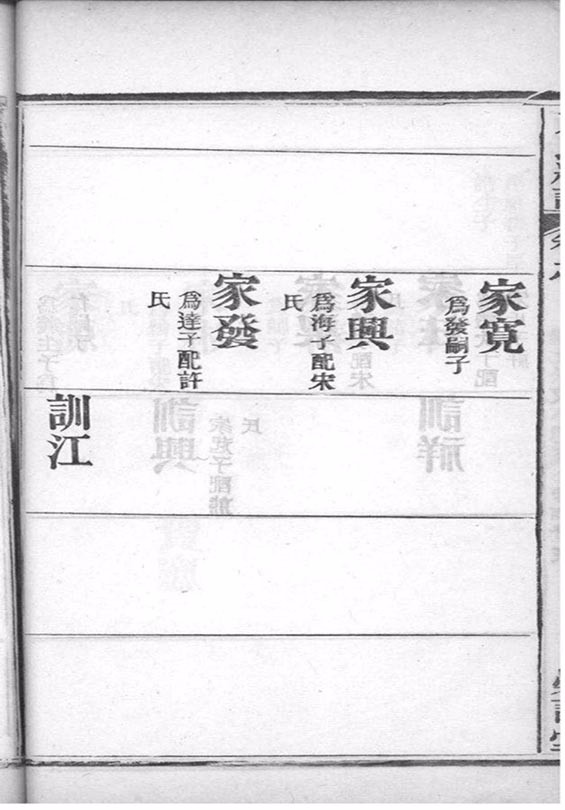 家寬
爲發嗣子
家興
爲海子配宋
氏
家發
爲達子配許
氏
訓江